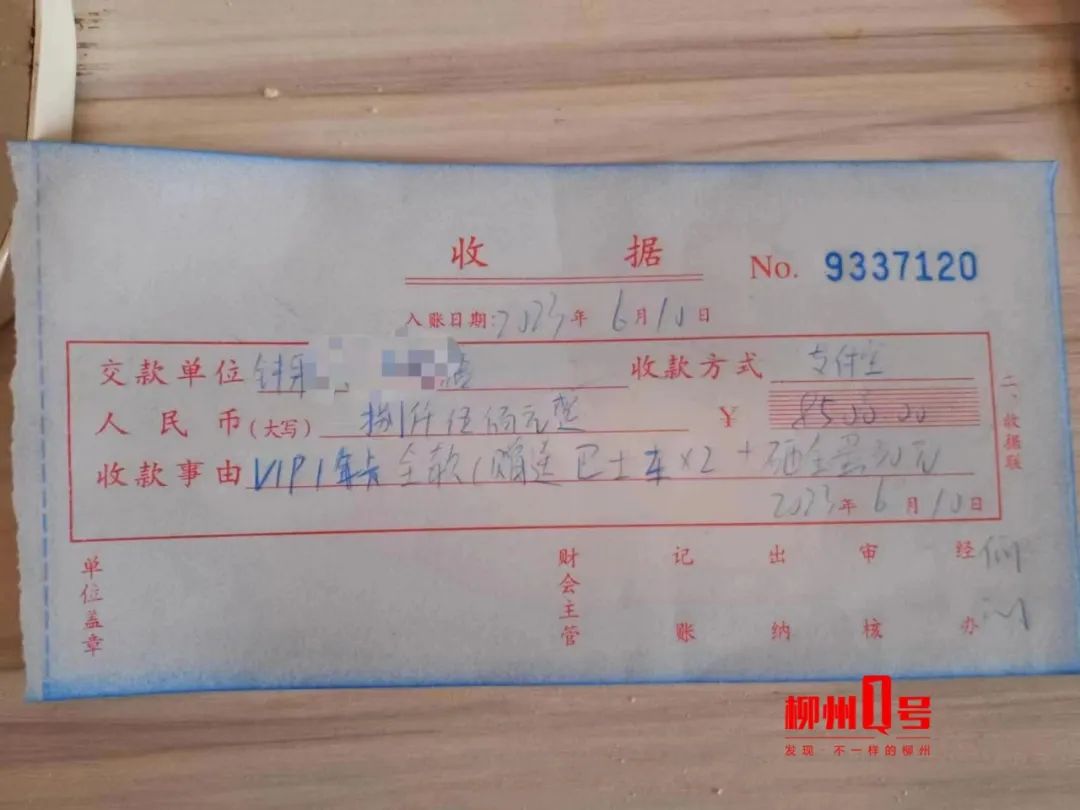 收 据
No. 9337120
入账日期:2023年 6月10日
交款单位 收款方式 支付宝
人民币(大写) 捌仟伍佰元整 ¥ 8500.00
收款事由 VIP1年卡全款(赠送巴士车×2+砸金蛋30元
2023年 6月10日
二、收据联
单位盖章 财会主管 记账 出纳 审核 经办
柳州Q号
发现·不一样的柳州